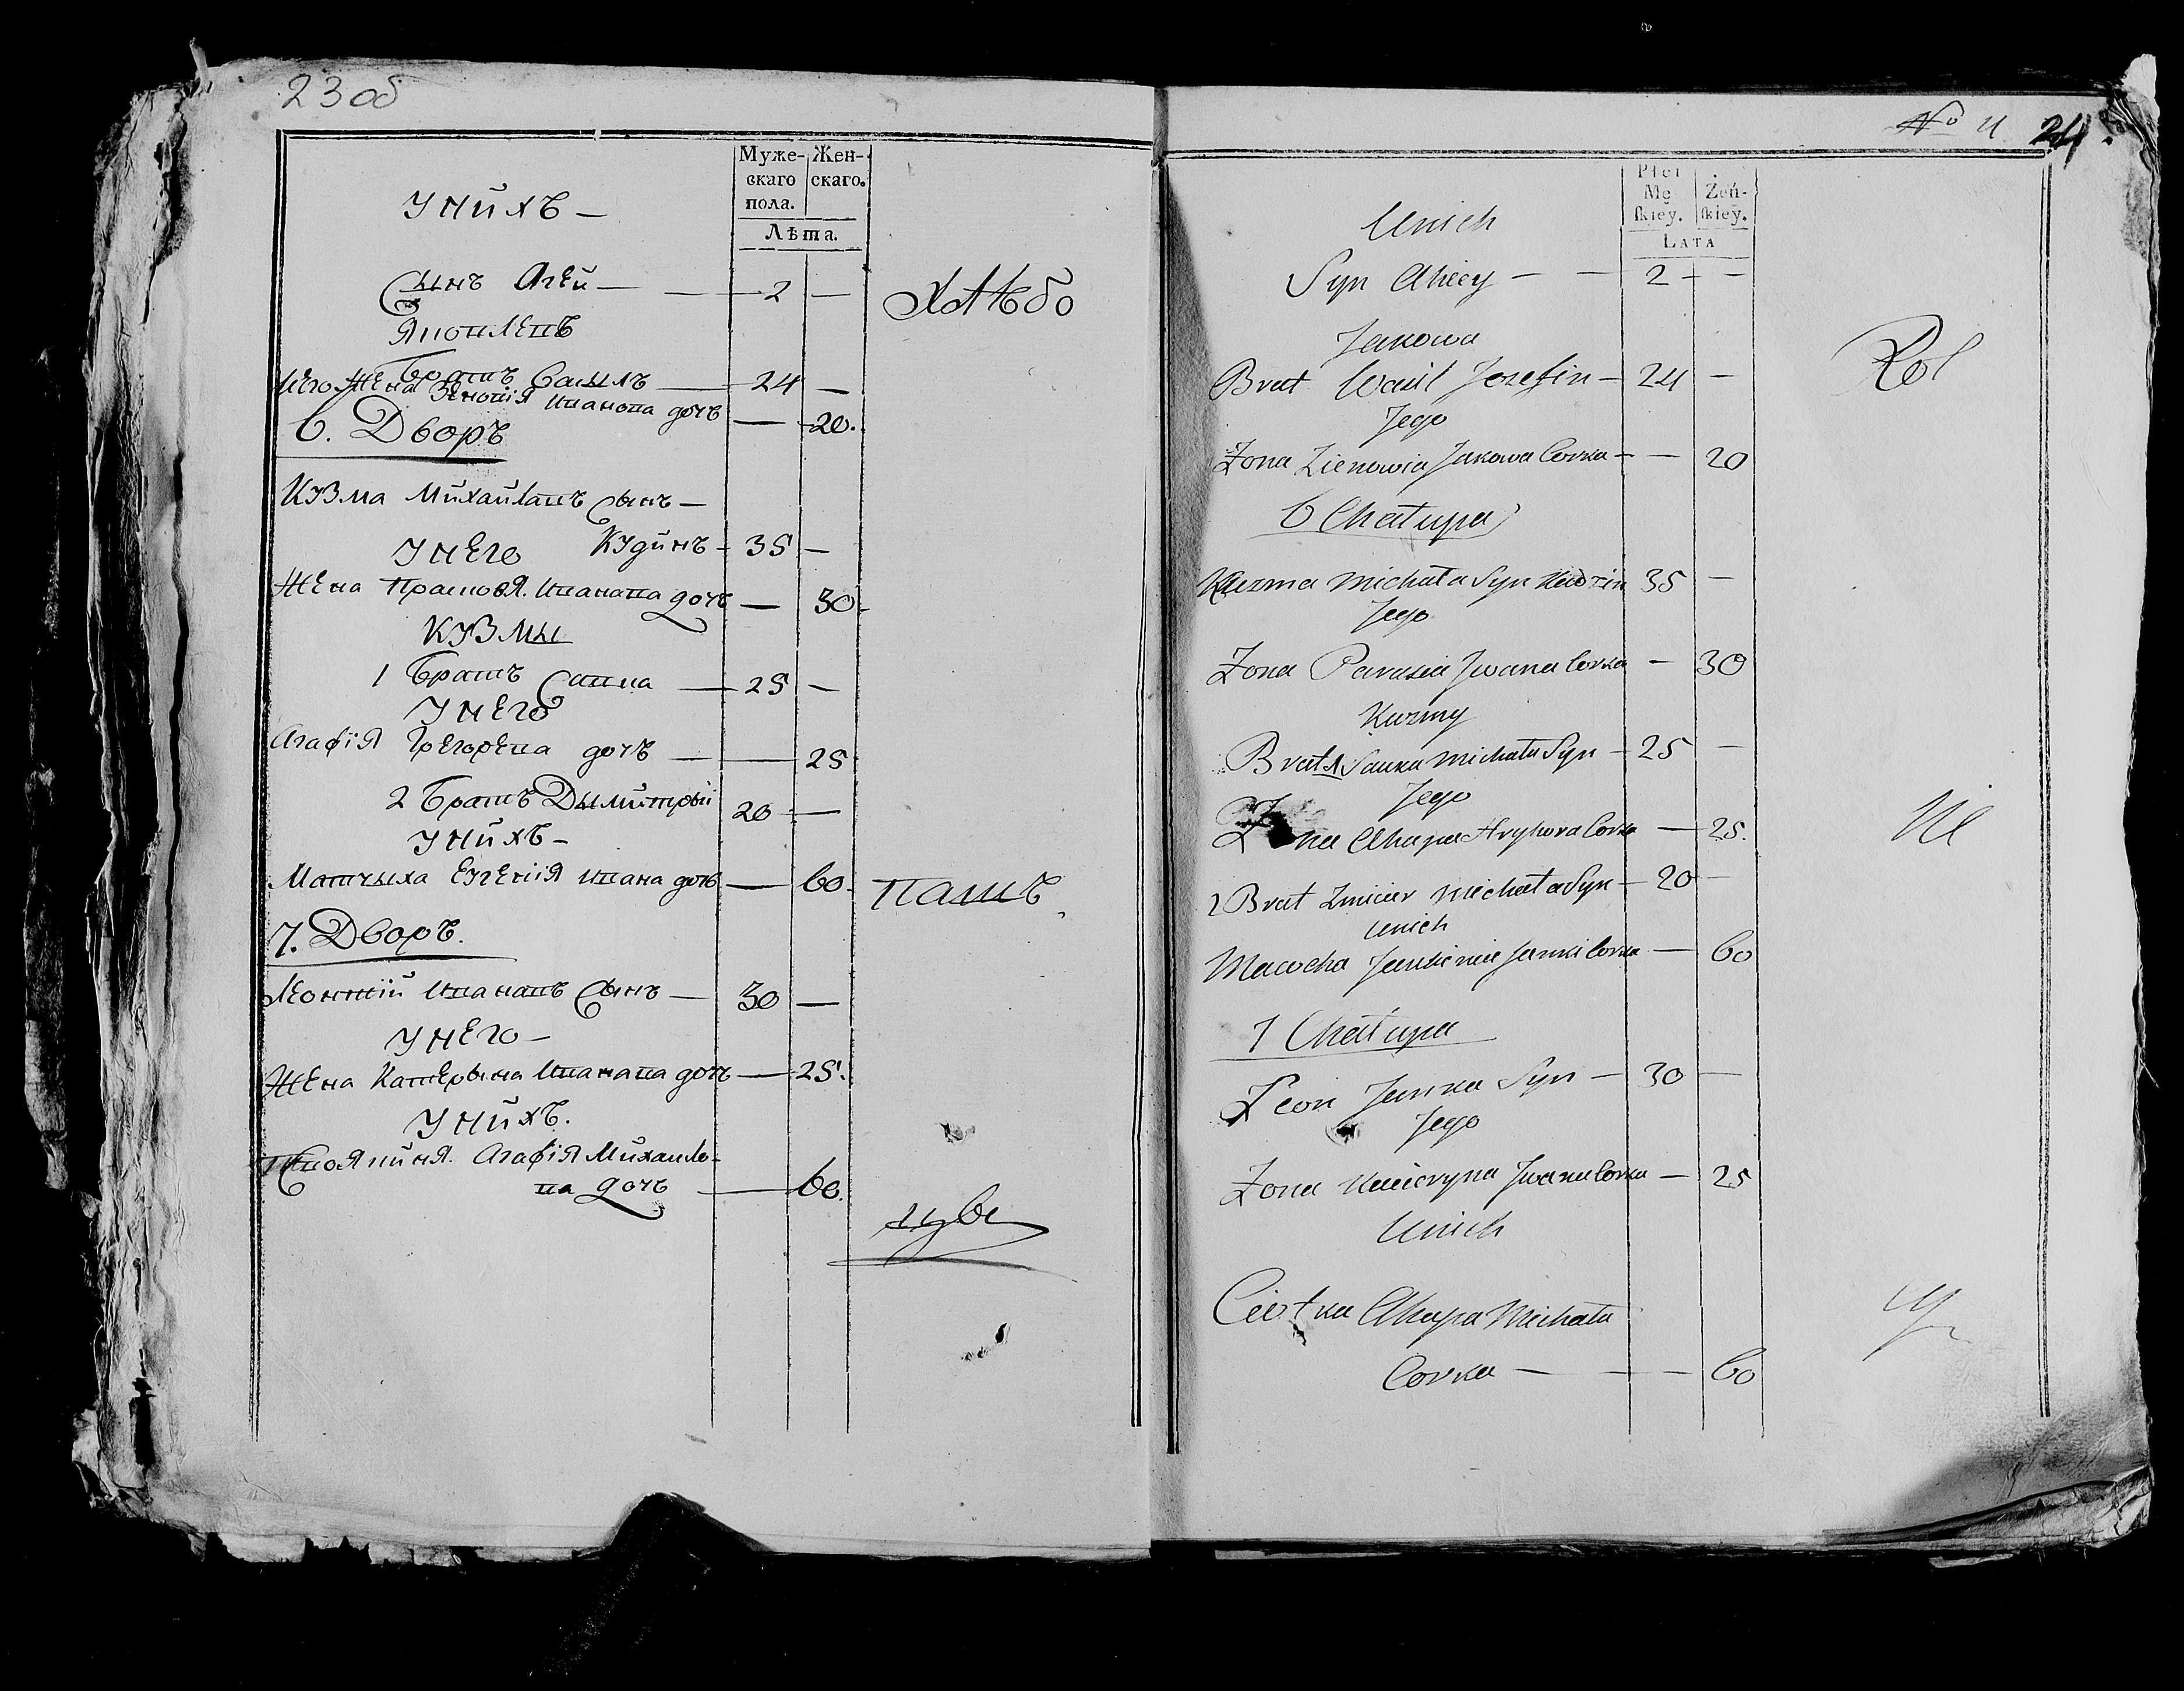 23 об
Муже- Жен-
скаго скаго.
пола.
Лѣта.
У нихъ —
Сынъ Агей — 2 —
Хлѣбо
Яковлевъ
Братъ Василъ — 24 —
Его жена Зеновія Иванова дочь — 20.
6. Дворъ
Кузма Михайлавъ Сынъ —
Кудинъ - 35 —
У него
Жена Прасковя Иванава дочь — 30
Кузмы
1 Братъ Савка — 25 —
У него
Агафія Грегорева дочь — 25
2 Братъ Дымитрый 20 —
У нихъ -
Матчыха Евгенія Ивана дочь — 60.
пашъ
7. Дворъ.
Леонтій Иванавъ Сынъ — 30 —
У него —
Жена Катерына Иванава дочь — 25.
У нихъ.
Агафія Михайло-
ва дочь — 60.
№ 4 24.
Płci
Mę Żeń-
skiey. skiey.
LATA
Unich
Syn Ahiey — — 2 — —
Jakowa
Brat Wasil Jozefin — 24 —
Rol
Jego
Zona Zienowia Jakowa Corka — — 20
6 Chałupa
Kuzma Michała Syn Kudzin 35 —
Jego
Zona Parasia Jwana Corka — 30
Kuzmy
Brat 1 Sauka Michała Syn — 25 —
Jego
Zona Ahapa Hryhora Corka — 25.
ni
2 Brat Zmicier Michała Syn — 20 —
Unich
Macocha Jauhienia Janki Corka — 60
7 Chałupa
Leon Janka Syn — 30 —
Jego
Zona Kacieryna Jwana Corka — 25
Unich
Ciotka Ahapa Michała
Corka — — — 60